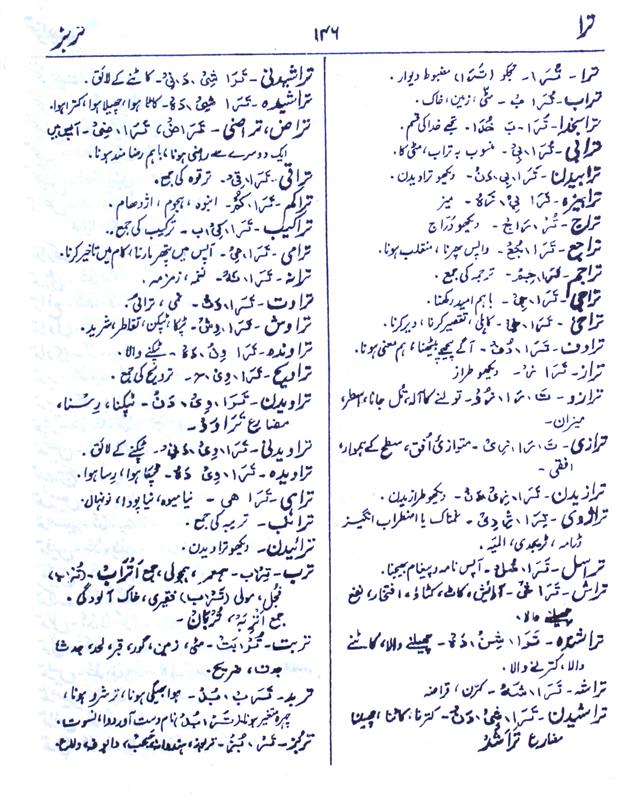 ترا ۱۴۶ تربز
ترا - تُرَا - تجکو (تُرا) مضبوط دیوار.
تراب - تُرَا بْ - مٹی، زمین، خاک.
ترابخدا - تُرَا - بَ خُدَا - تجھے خدا کی قسم.
ترابی - تُرَا، بِیْ - منسوب بہ تراب، مٹی کا.
ترابیدن - تَرَا، بِی، دَنْ - دیکھو تراویدن.
ترابیزہ - تَرَا بِیْ، زَہْ - میز
تراج - دیکھو دُرّاج
تراجع - تَرَا، جُعْ - واپس پھرنا، منقلب ہونا.
تراجم - تَرَا جِمْ - ترجمہ کی جمع.
تراجی - تَرَا، جِیْ - باہم امید رکھنا.
تراخی - تَرَا، خِیْ - کاہلی، تقصیر کرنا، دیر کرنا.
ترادف - تَرَا، دُفْ - آگے پیچھے بیٹھنا، ہم معنی ہونا.
تراز - تَرَا زْ - دیکھو طراز
ترازو - تَ، رَا، زُوْ - تولنے کا آلہ، تُل جانا، اسطر،
میزان -
ترازی - تَ، رَا، زِیْ - متوازئ اُفق، سطح کے ہموار،
افقی -
ترازیدن - تَرَا، زِیْ، دَنْ - دیکھو طرازیدن.
تراژوی - تَرَا، ژِ، دِیْ - المناک یا اضطراب انگیز
ڈرامہ، ٹریجڈی، المیہ.
تراسل - تَرَا، سُلْ - آپس نامہ و پیغام بھیجنا.
تراش - تَرَا شْ - کاٹ، کٹاؤ، افتخار، نفع
چھیلنے والا.
تراشندہ - تَرَا، شِنْ، دَہْ - چھیلنے والا، کاٹنے
والا، کترنے والا.
تراشہ - تَرَا، شَہْ - کترن، قراضہ
تراشیدن - تَرَا، شِیْ، دَنْ - کترنا، کاٹنا، چھیلنا
مضارع تَرَاشَدْ
تراشیدنی - تَرَا شِیْ، دَنِیْ - کاٹنے کے لائق.
تراشیدہ - تَرَا شِیْ، دَہْ - کاٹا ہوا، چھیلا ہوا، کترا ہوا.
تراض، تراضی - تَرَاضْ، تَرَا، ضِیْ - آپس میں
ایک دوسرے سے راضی ہونا، باہم رضامند ہونا.
تراقی - تَرَا، قِیْ - ترقوہ کی جمع.
تراکم - تَرَا، کُمْ - انبوہ، ہجوم، اژدھام.
تراکیب - تَرَا، کِیْ، بْ - ترکیب کی جمع.
ترامی - تَرَا، مِیْ - آپس میں پتھر مارنا، کام میں تاخیر کرنا.
ترانہ - تَرَا، نَہْ - نغمہ، زمزمہ.
تراوت - تَرَا، وَتْ - نمی، ترائی.
تراوش - تَرَا، وِشْ - ٹپکا، ٹپکن، تقاطر، شرید.
تراوندہ - تَرَا وِنْ، دَہْ - ٹپکنے والا.
تراویح - تَرَا، وِیْ، حْ - ترویح کی جمع.
تراویدن - تَرَا، وِیْ، دَنْ - ٹپکنا، رِسنا،
مضارع تَرَاوَدْ -
تراویدنی - تَرَا، وِیْ، دَنِیْ - ٹپکنے کے لائق.
تراویدہ - تَرَا، وِیْ، دَہْ - ٹپکا ہوا، رسا ہوا.
تراہی - تَرَا ھِی - نیا میوہ، نیا پودا، نونہال.
ترائب - تریبہ کی جمع.
ترائیدن - دیکھو تراویدن.
ترب - تِرْب - ہمسر، ہمجولی، جمع اَتْرَاب -
فجل، مولی (تَرَب) فقیری، خاک آلودگی.
جمع اَتْرِبَہ،
تربت - تُرْ، بَتْ - مٹی، زمین، گور، قبر، لحد، جدث،
جدف، ضریح.
تربد - تَرَ بُدْ - ہوا بھیگی ہونا، ترشرو ہونا،
چہرہ متغیر ہونا، نام دست آور دوا، نسوت.
تربز - تَرْ، بُزْ - تربوز، ہندوانہ،